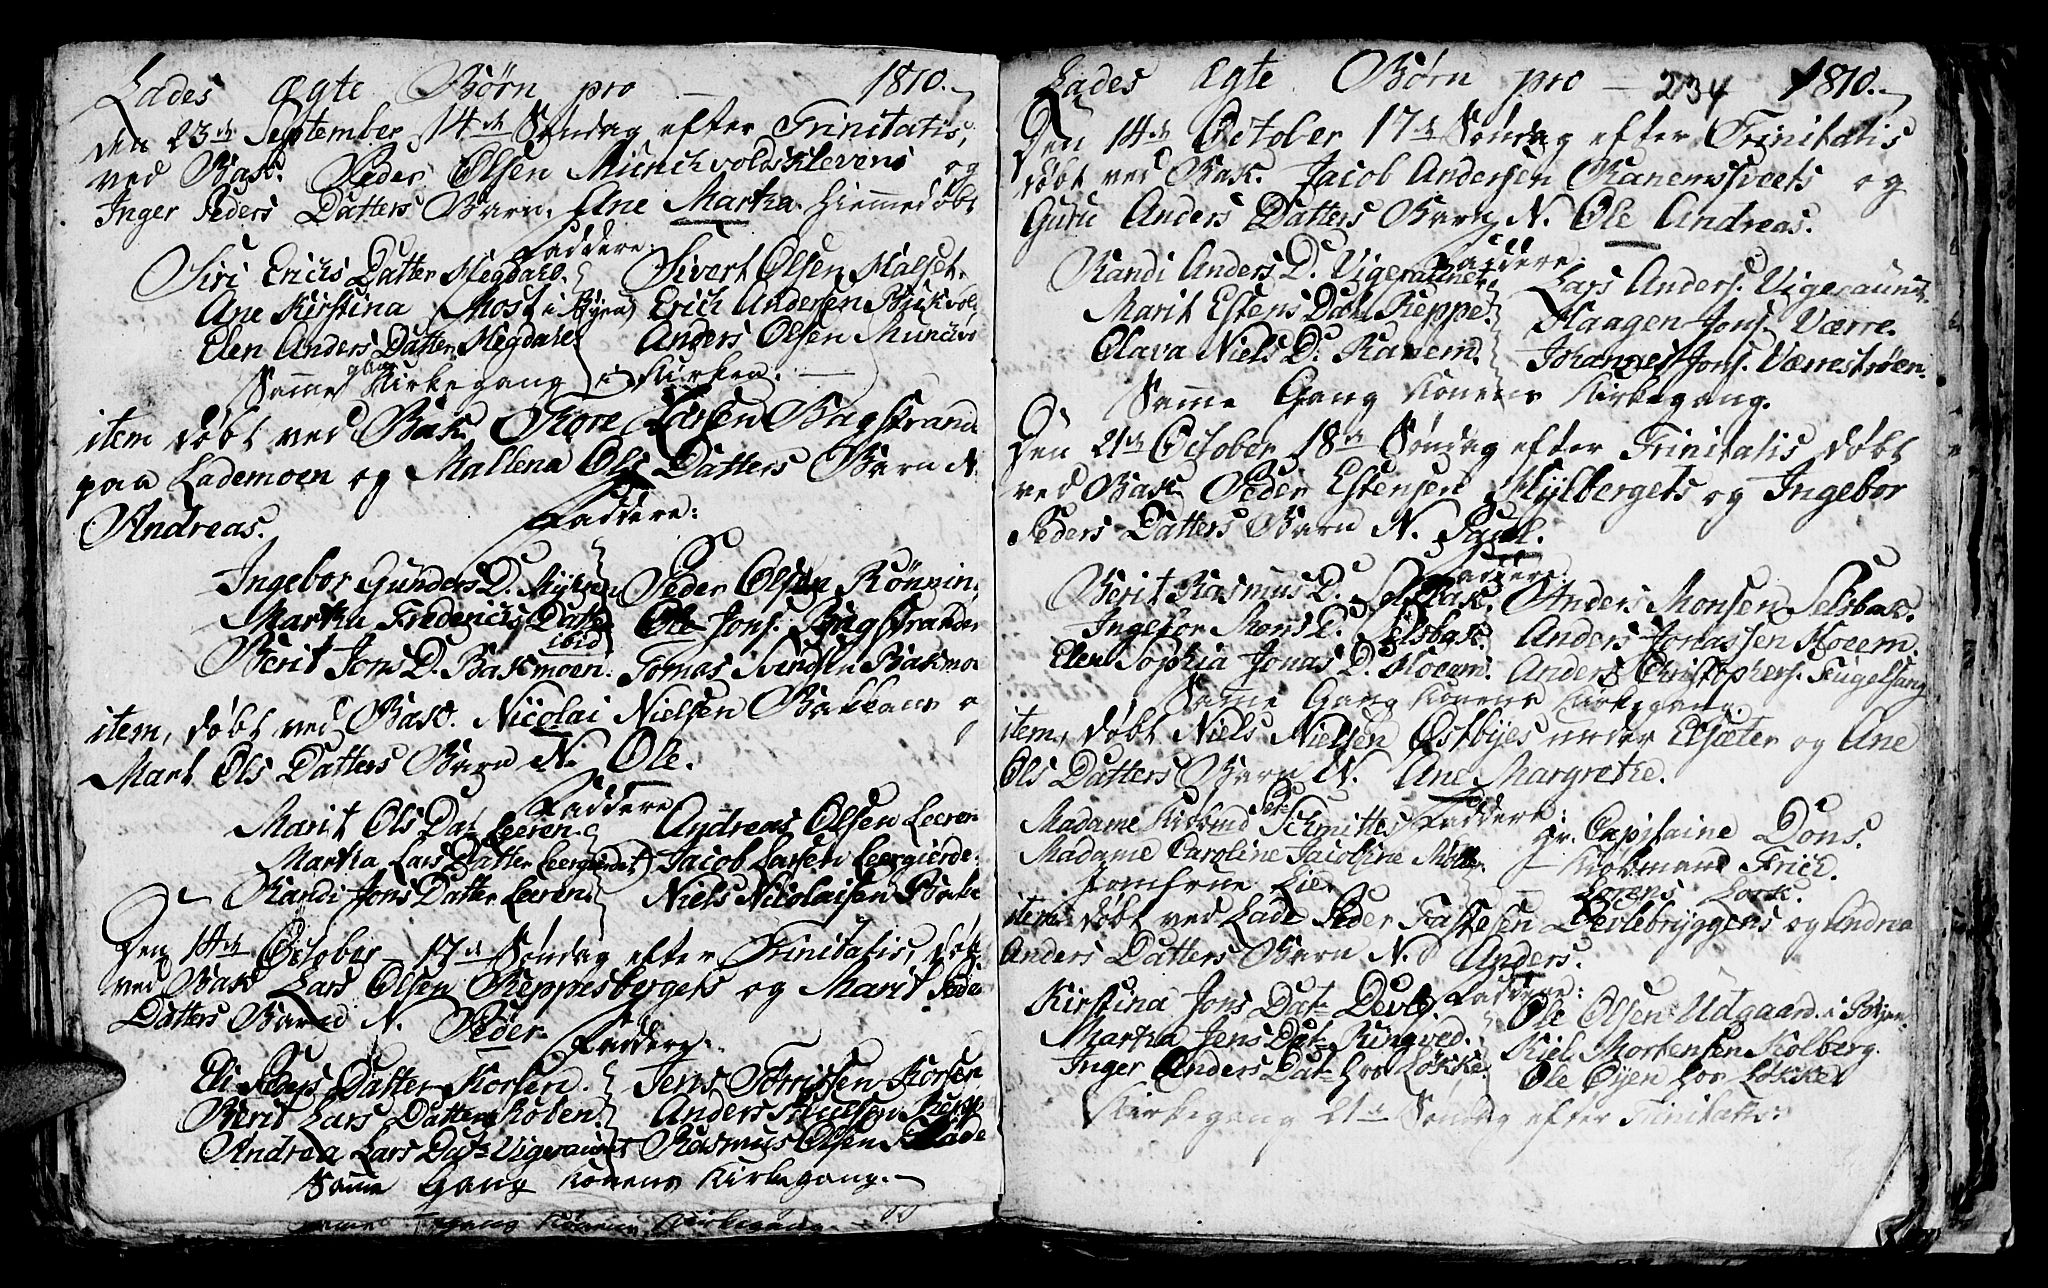 Lades ægte Børn pro — 1810.
den 23de September 14de Søndag efter Trinitatis,
ved Bak. Peder Olsen Munchvoldsklevens og
Inger Peders Datters Barn. Ane Martha. Hiemmedøbt
Faddere:
Siri Erichs Datter Megdahl. Sivert Olsen Malset.
Ane Kirstina Most i Byen Erich Andersen
Elen Anders Datter Megdahl. Anders Olsen
Samme gang Kirkegang i Kirken. —
item døbt ved Bak. Tore Larsen Bagstrand
paa Lademoen og Mallena Ols Datters Barn N.
Andreas.
Faddere:
Ingebor Gunders D. Peder Olsen Rønnin
Martha Fredericks Datter ibid Ole Jons. Bagstranden
Berit Jons D. Bakmoen. Tomas Svendsen Bakmo
item, døbt ved Bak. Nicolai Nielsen Bakkans o
Marit Ols Datters Barn N. Ole.
Faddere
Marit Ols Dat. Leeren. Andreas Olsen Leeren
Martha Lars Datter Leergieret Jacob Larsen Leergierde.
Randi Jons Datter Leeren. Niels Nicolaisen Bakke
Den 14de October 17de Søndag efter Trinitatis, døbt
ved Bak Lars Olsen Reppesbergets og Marit Peders
Datters Barn N. Peder.
Faddere.
Eli Peders Datter Korsen. Jens Torrissen Korsen
Berit Lars Datter Anders
Andrea Lars Dat. Vigeraunet Rasmus Olsen Lade
Samme Gang Konens Kirkegang.
Lades ægte Børn pro — 234 1810.
Den 14de October 17de Søndag efter Trinitatis
døbt ved Bak. Jacob Andersen Ranemsveets og
Guru Anders Datters Barn N. Ole Andreas.
Faddere:
Randi Anders D. Vigeraunet. Lars Anders. Vigeraunet.
Marit Estens Dat. Reppe. Haagen Jons. Værre.
Olava Niels D. Ranem. Johannes Jons. Værrestrøen.
Samme Gang Konens Kirkegang.
Den 21de October 18de Søndag efter Trinitatis døbt
ved Bak Peder Estensen og Ingebor
Peders Datters Barn N. Paul.
Faddere:
Berit Rasmus D. Selsbak. Anders Monsen Selsbak.
Ingebor Mons D. Selsbak. Anders Jonassen Hoeem.
Elen Sophia Jonas D. Hoeem. Anders Christophers. Fugelsang
Samme Gang Konens Kirkegang.
item, døbt Niels Nielsen Østbyes under Elsæter og Ane
Ols Datters Barn N. Ane Margrethe.
Faddere:
Madame Schmittes Hr. Capitaine Dons.
Madame Caroline Jacobine — Kiøbmand Frich.
Jomfrue Lie. — Lorens Lork.
item døbt ved Lade Peder Devlebryggens og Andrea
Anders Datters Barn N. Anders.
Faddere:
Kirstina Jons Dat. Devle. Ole Olsen Udgaard i Byen.
Martha Jens Dat. Ringved. Kiel Mortensen Kolberg.
Inger Anders Dat. hos Løkke. Ole Øyen hos Løkke
Kirkegang 21de Søndag efter Trinitatis.